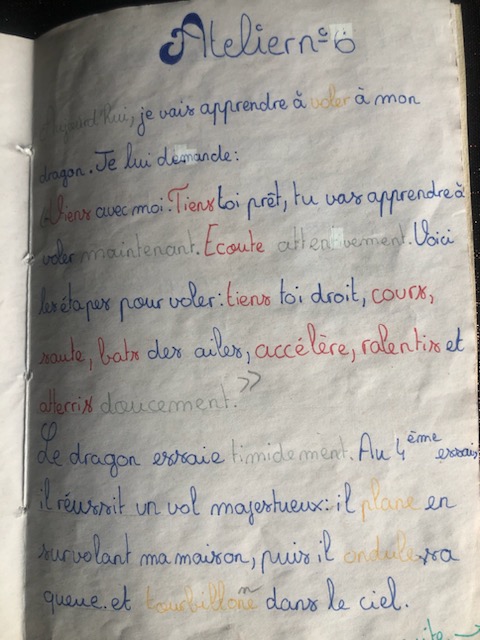 Atelier n°6
Aujourd'hui, je vais apprendre à voler à mon
dragon. Je lui demande:
«Viens avec moi. Tiens toi prêt, tu vas apprendre à
voler maintenant. Ecoute attentivement. Voici
les étapes pour voler: tiens toi droit, cours,
saute, bats des ailes, accélère, ralentis et
atterris doucement.»
Le dragon essaie timidement. Au 4ème essai,
il réussit un vol majestueux: il plane en
survolant ma maison, puis il ondule sa
queue. et tourbillonne dans le ciel.